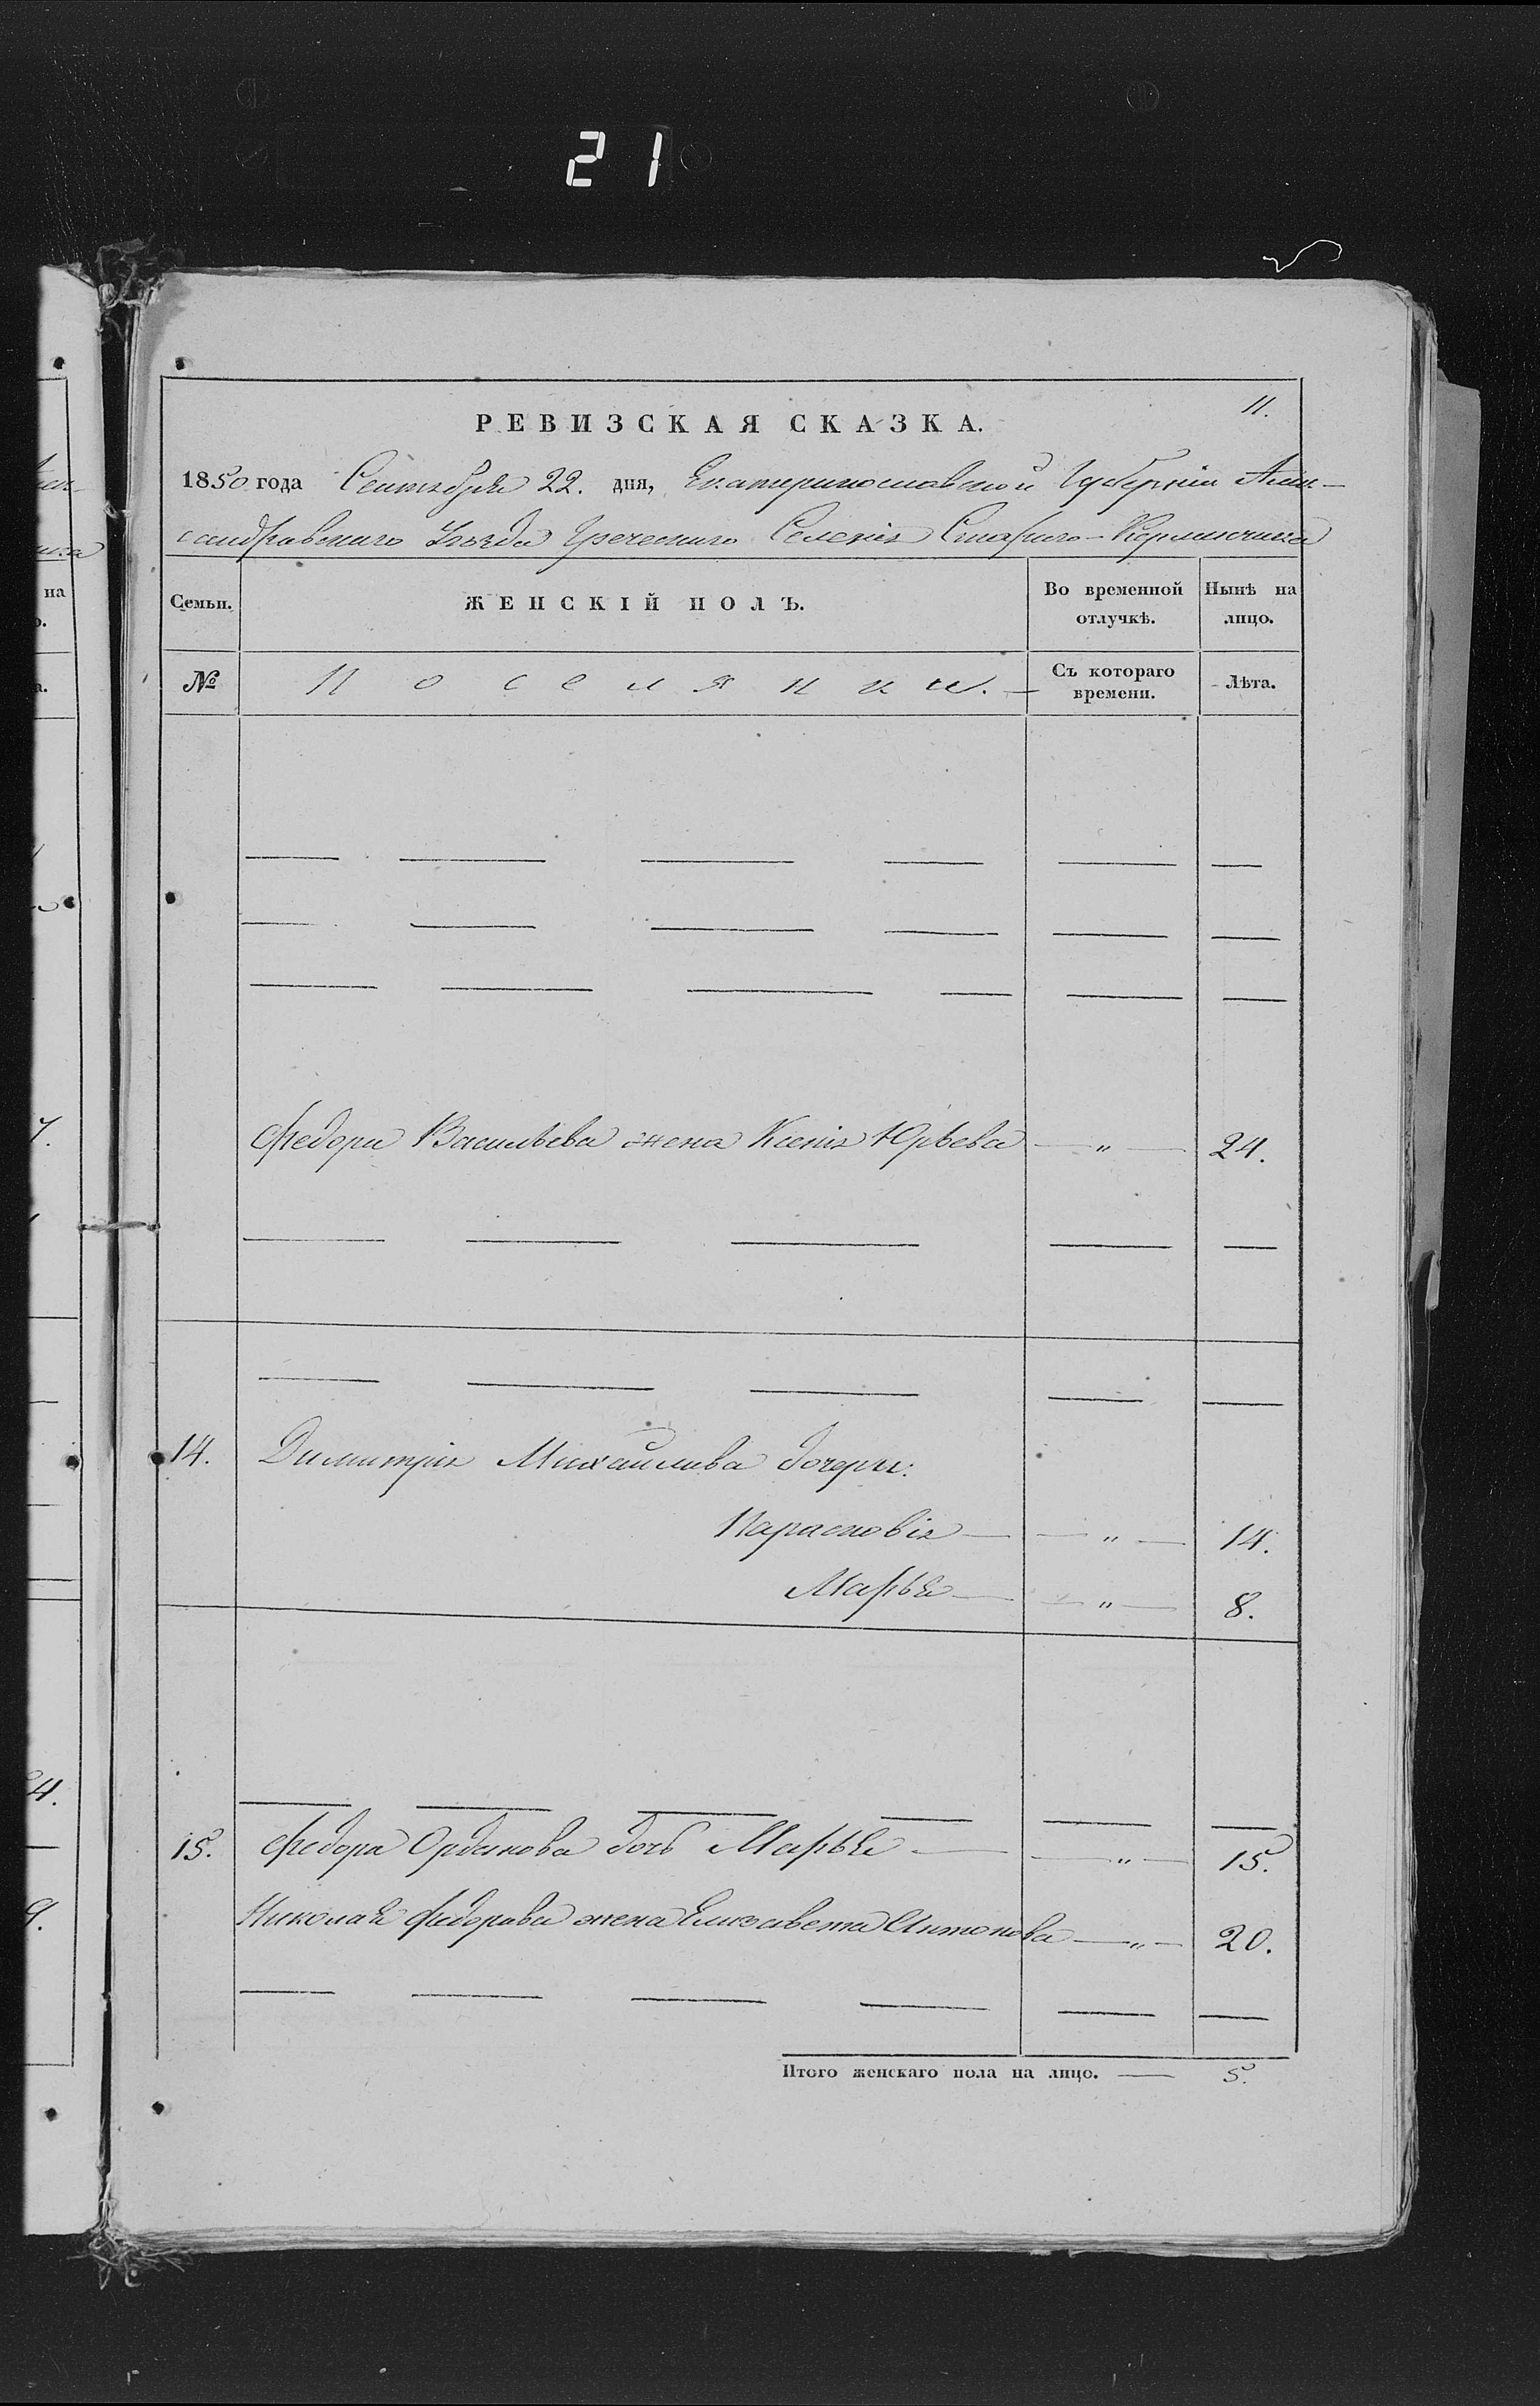 21
11.
РЕВИЗСКАЯ СКАЗКА.
1850 года Сентября 22. дня, Екатеринославской Губерніи Алек-
сандравскаго Уѣзда Греческаго Селенія Стараго-Керменчика
Семьи.
ЖЕНСКІЙ ПОЛЪ.
Во временной отлучкѣ.
Нынѣ на лицо.
№
Поселянки.
Съ котораго времени.
Лѣта.
Федора Васильева жена Ксенія Юрьева — " — 24.
14. Димитрія Михайлова дочери:
Парасковія — " — 14.
Марья — " — 8.
15. Федора Орданова дочь Марья — " — 15.
Николая Федорова жена Елизавета Антонова — " — 20.
Итого женскаго пола на лицо. — 5.